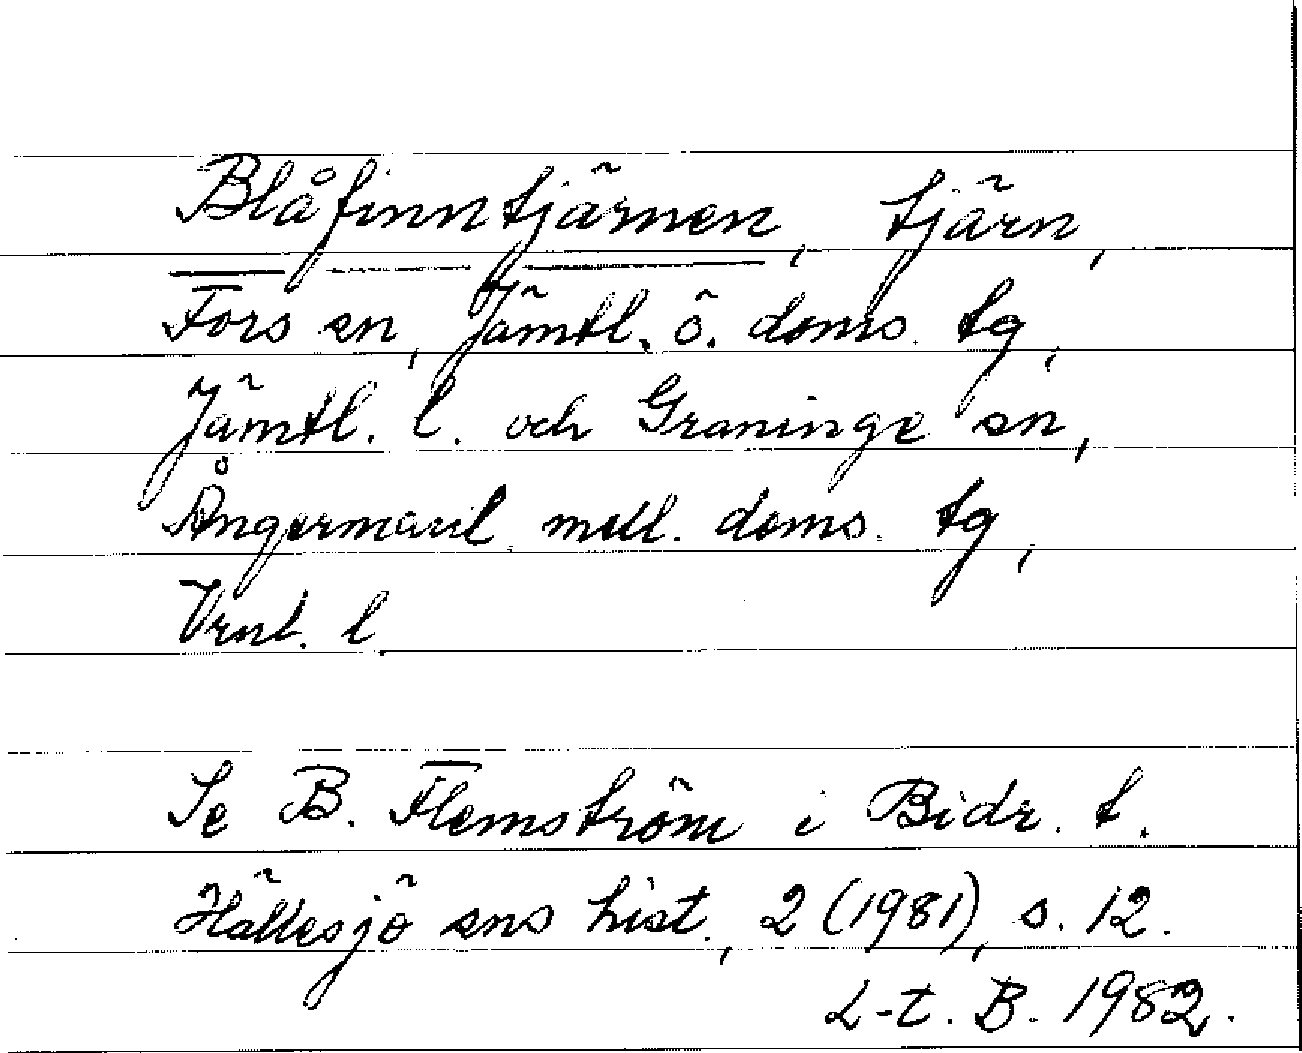 Blåfinntjärnen, tjärn,
Fors sn, Jämtl. ö. doms. tg,
Jämtl. l. och Graninge sn,
Ångermanl. mell. doms. tg,
Vrnl. l.
Se B. Flemström i Bidr. t.
Hällesjö sns hist., 2 (1981), s. 12.
L-t. B. 1982.